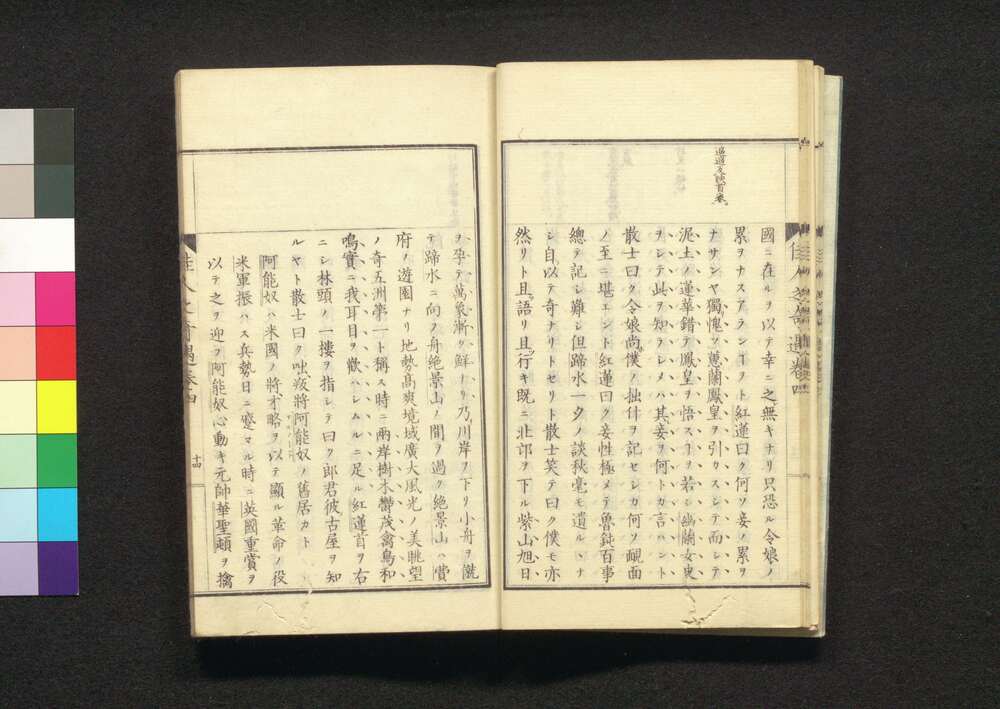 遥遥反映首巻
國ニ在ルヲ以テ幸ニ之無キナリ只恐ル令娘ノ
累ヲナスアランヿヲト紅蓮曰ク何ソ妾ノ累ヲ
ナサンヤ獨愧ツ蕙蘭鳳皇ヲ引カスシテ而シテ
泥土ノ蓮華錯テ鳳皇ヲ悟スヿヲ若シ幽蘭女史
ヲシテ此ヲ知ラシメハ其妾ヲ何トカ言ハント
散士曰ク令娘尚僕ノ拙什ヲ記セシカ何ソ靦面
ノ至ニ堪エント紅蓮曰ク妾性極メテ魯鈍百事
總テ記シ難シ但蹄水一夕ノ談秋毫モ遺ルヽナ
シ自以テ奇ナリトセリト散士笑テ曰ク僕モ亦
然リト且語リ且行キ既ニ北邙ヲ下ル紫山旭日
佳人之奇遇 卷四
ヲ孕テ萬象漸ク鮮ナリ乃川岸ヲ下リ小舟ヲ僦
テ蹄水ニ向ノ舟絶景山ノ間ヲ過ク絶景山ハ費
府ノ遊園ナリ地勢高爽境域廣大風光ノ美眺望
ノ奇五洲第一ト稱ス時ニ兩岸樹木鬱茂禽鳥和
鳴實ニ我耳目ヲ歡ハシムルニ足ル紅蓮首ヲ右
ニシ林頭ノ一樓ヲ指シテ曰ク郎君彼古屋ヲ知
ルヤト散士曰ク咄叛將阿能奴ノ舊居カト
阿能奴ハ米國ノ將才略ヲ以テ顯ル革命ノ役
米軍振ハス兵勢日ニ蹙マル時ニ英國重賞ヲ
以テ之ヲ迎フ阿能奴心動キ元帥華聖頓ヲ擒
佳人之奇遇卷四
十四